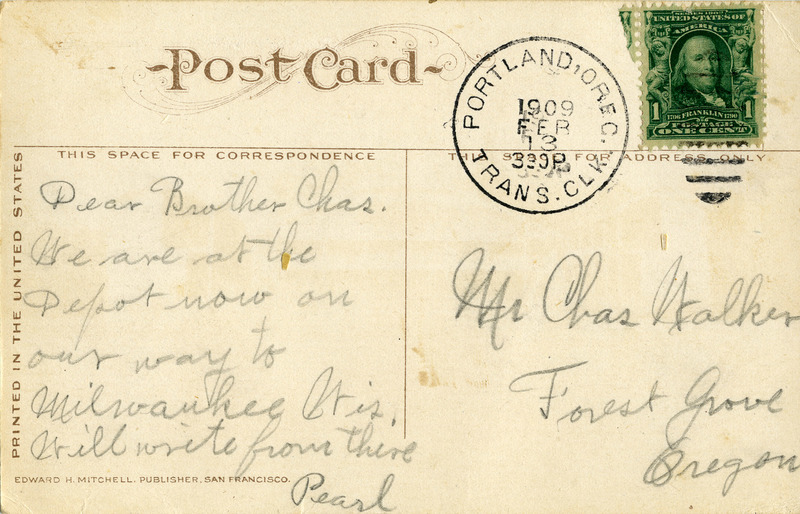 Post Card
PORTLAND, OREG.
1909
FEB
13
330P
TRANS. CLK.
SERIES 1902
UNITED STATES OF
AMERICA
1 1
1706 FRANKLIN 1790
POSTAGE
ONE CENT
THIS SPACE FOR CORRESPONDENCE
FOR ADDRESS ONLY
PRINTED IN THE UNITED STATES
Dear Brother Chas.
We are at the
Depot now on
our way to
Milwaukee Wis.
Will write from thire
Pearl
Mr Chas Walker
Forest Grove
Oregon
EDWARD H. MITCHELL, PUBLISHER, SAN FRANCISCO.